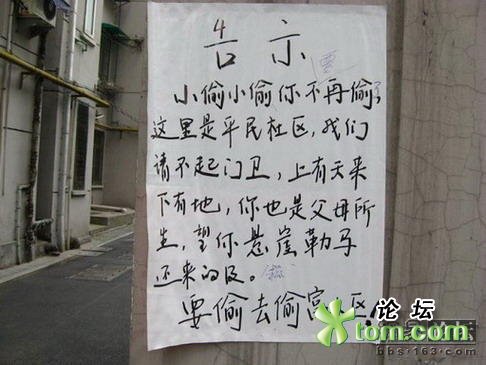 告示
要
小偷小偷你不再偷,
这里是平民社区,我们
请不起门卫,上有天来
下有地,你也是父母所
生,望你悬崖勒马
还来的及。
要偷去偷富 区
论坛
tom.com
bbs.163.com